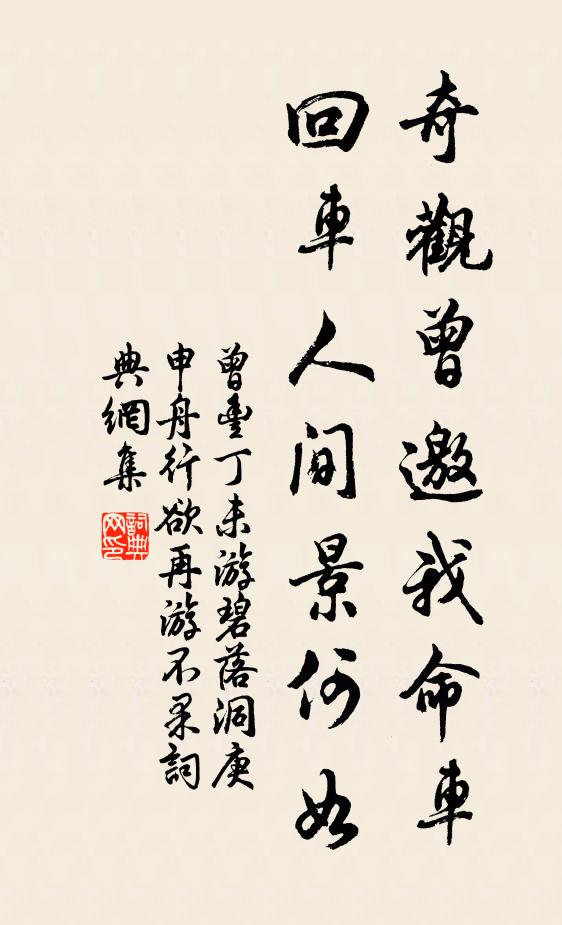 奇觀曾邀我命車
回車人間景何如
曾豐丁未游碧落洞庚
申舟行欲再游不果詞
典網集
詞典網印